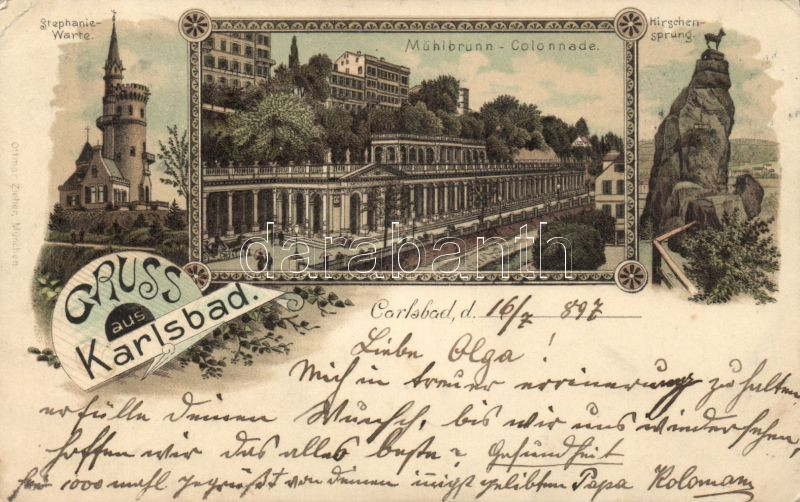 Stephanie-
Warte.
Mühlbrunn - Colonnade.
Hirschen-
sprung.
Ottmar Zieher, München
darabanth
GRUSS
aus
Karlsbad.
Carlsbad, d. 16/7 897
Liebe Olga!
Mich in treuer errinerung zu halten
erfülle deinen Wunsch, bis wir uns wiedersehen,
hoffen wir das alles beste Gesundheit
sei 1000 mahl gegrüßt von deinen innigst gelibten Papa Koloman